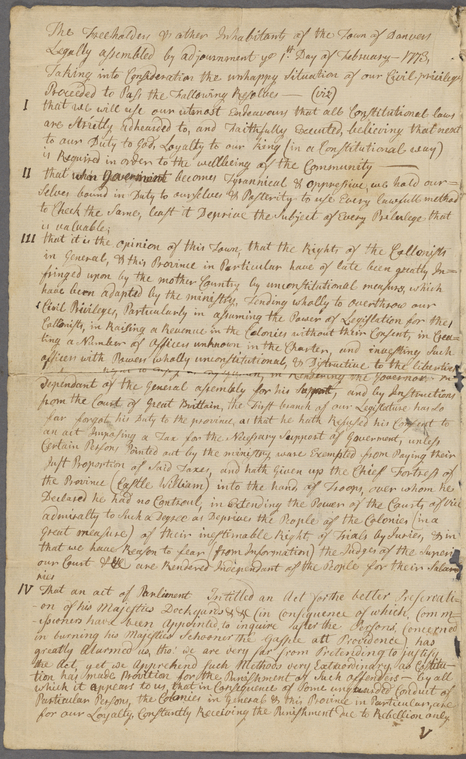 The Freeholders & other Inhabitants of the Town of Danvers
Legally assembled by adjournment ye 1st Day of February - 1773,
Taking into Consideration the unhappy Situation of our Civil privileges
Proceeded to Pass the Following Resolves — (viz)
I that we will use our utmost Endeavours that all Constitutional laws
are Strictly adhearded to, and Faithfully Executed, believing that next
to our Duty to God, Loyalty to our King (in a Constitutional way)
is Required in order to the wellbeing of the Community
II that when Government becomes Tyrannical & Oppresive, we hold our=
selves bound in Duty to ourselves & Posterity to use Every Lawfull method
to Check the Same, least it Deprive the Subject of Every Privilege that
is valuable;
III that it is the opinion of this Town, that the Rights of the Collonists
in General, & this Province in Particular have of late been greatly In=
fringed upon by the mother Country by unconstitutional measurs, which
have been adapted by the ministry, Tending wholly to overthrow our
Civil Privileges, Particularly in assuming the Power of Legislation for the
Collonists, in Raising a Revenue in the Colonies without their Consent, in Crea=
ting a Number of Officers unknown in the Charter, and investing Such
officers with Powers wholly unconstitutional, & Distructive to the liberties
in Rendering the Governor in
Dependant of the General assembly for his Support, and by Instructions
from the Court of Great Brittain, the First branch of our Legislature has So
far forgot his Duty to the province, as that he hath Refused his Consent to
an act Imposing a Tax for the Necessary Support of Goverment, unless
Certain Persons Pointed out by the ministry, ware Exempted from Paying their
Just Proportion of Said Taxes, and hath Given up the Chief Fortress of
the Province (Castle William) into the hand of Troops, over whom he
Declared he had no Controul, in extending the Power of the Courts of Vice
admiralty to Such a Degree as Deprives the People of the Colonies (in a
Great measure) of their inestimable Right of Trials by Juries, & in
that we have Reason to fear (from Information) the Judges of the Superi=
our Court & are Rendered Independent of the People for their Salar=
ries
IV That an act of Parliment Intitled an Act for the better Preservati=
on of his Majesties Dockyards & (in Consequence of which, Comm=
issioners have been Appointed to inquire after the Persons Concerned
in burning his Majesties Schooner the Gaspee att Providence) has
greatly Alarmed us, tho' we are very far from Pretending to Justify
the Act, yet we Apprehend Such Methods very Extraordinary, as Constitu=
tion has made Provition for the Punishment of Such offenders - by all
which it appears to us, that in Consequence of Some unguarded Conduct of
Particular Persons, the Colonies in General & this Province in Particular, are
for our Loyalty, Constantly Receiving the Punishment due to Rebellion only
V